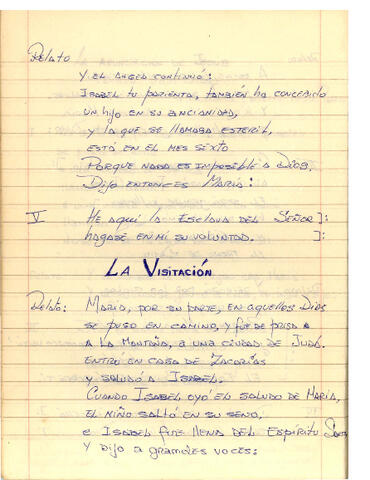 Relato
Y EL ANGEL CONTINUÓ:
ISABEL TU PARIENTA, TAMBIÉN HA CONCEBIDO
UN HIJO EN SU ANCIANIDAD,
Y LA QUE SE LLAMABA ESTERIL,
ESTÁ EN EL MES SEXTO
PORQUE NADA ES IMPOSIBLE A DIOS.
DIJO ENTONCES MARIA:
V HE AQUÍ LA ESCLAVA DEL SEÑOR ]:
HAGASE EN MI SU VOLUNTAD. ]:
LA VISITACIÓN
Relato: MARIA, POR SU PARTE, EN AQUELLOS DIAS
SE PUSO EN CAMINO, Y FUE DE PRISA
A LA MONTAÑA, A UNA CIUDAD DE JUDÁ.
ENTRÓ EN CASA DE ZACARÍAS
Y SALUDÓ A ISABEL.
CUANDO ISABEL OYÓ EL SALUDO DE MARIA,
EL NIÑO SALTÓ EN SU SENO,
E ISABEL FUE LLENA DEL ESPÍRITU SANTO
Y DIJO A GRANDES VOCES: